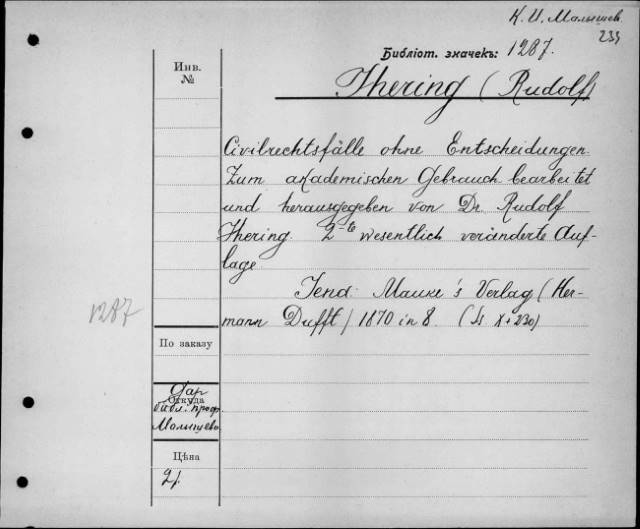 К. И. Малышев
239
Библіот. значекъ: 1287.
Инв.
№
Jhering (Rudolf)
Civilrechtsfälle ohne Entscheidungen.
Zum akademischen Gebrauch bearbeitet
und herausgegeben von Dr. Rudolf
Jhering. 2-te wesentlich veränderte Auf-
lage
Jena: Mauke's Verlag (Her-
mann Dufft) 1870 in 8. (S. X+230)
1287
По заказу
Дар
Откуда
библ. проф.
Малышева
Цѣна
2р.